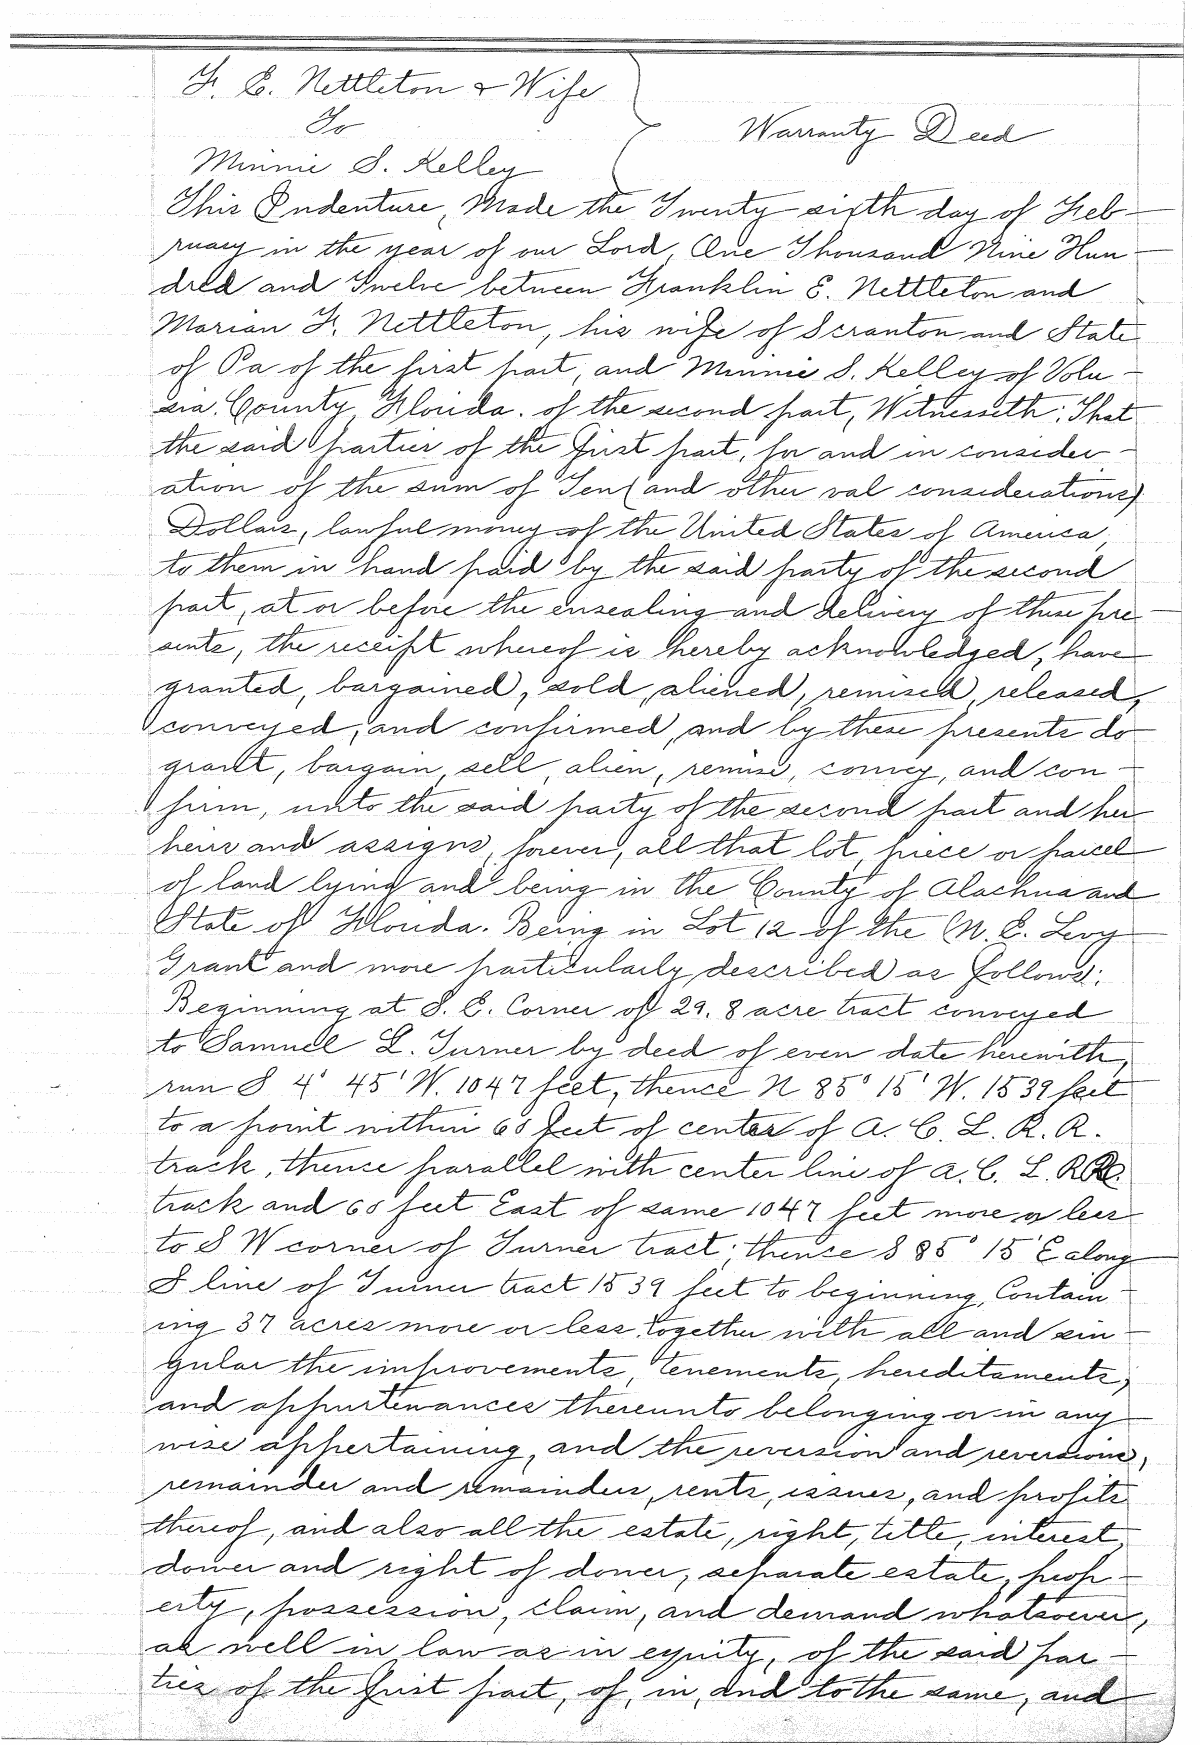 F. E. Nettleton & Wife
To
Warranty Deed
Minnie S. Kelley
This Indenture, Made the Twenty sixth day of Feb-
ruary in the year of our Lord, One Thousand Nine Hun-
dred and Twelve between Franklin E. Nettleton and
Marian F. Nettleton, his wife of Scranton and State
of Pa of the first part, and Minnie S. Kelley of Volu-
sia. County, Florida. of the second part, Witnesseth: That
the said parties of the first part, for and in consider-
ation of the sum of Ten (and other val considerations)
Dollars, lawful money of the United States of America,
to them in hand paid by the said party of the second
part, at or before the ensealing and delivery of these pre-
sents, the receipt whereof is hereby acknowledged, have
granted, bargained, sold, aliened, remised, released,
conveyed, and confirmed, and by these presents do
grant, bargain, sell, alien, remise, convey, and con-
firm, unto the said party of the second part and her
heirs and assigns, forever, all that lot, piece or parcel
of land lying and being in the County of Alachua and
State of Florida. Being in Lot 12 of the M. E. Levy
Grant and more particularly described as follows:
Beginning at S. E. Corner of 29.8 acre tract conveyed
to Samuel L. Turner by deed of even date herewith,
run S 4° 45' W. 1047 feet, thence N 85° 15' W. 1539 feet
to a point within 60 feet of center of A. C. L. R. R.
track, thence parallel with center line of A. C. L. R R.
track and 60 feet East of same 1047 feet more or less
to S W corner of Turner tract; thence S 85° 15' E along
S line of Turner tract 1539 feet to beginning, Contain-
ing 37 acres more or less. together with all and sin-
gular the improvements, tenements, hereditaments,
and appurtenances thereunto belonging or in any
wise appertaining, and the reversion and reversions,
remainder and remainders, rents, issues, and profits
thereof, and also all the estate, right, title, interest,
dower and right of dower, separate estate, prop-
erty, possession, claim, and demand whatsoever,
as well in law as in equity, of the said par-
ties of the first part, of, in, and to the same, and